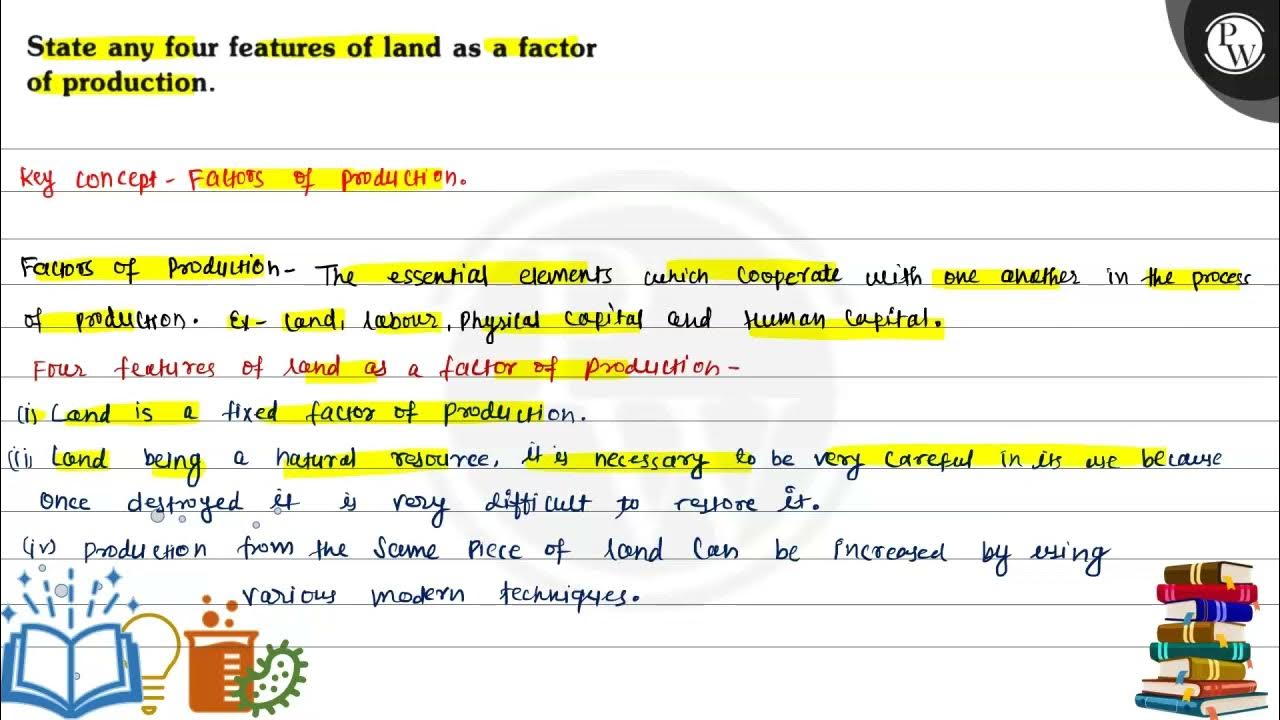 State any four features of land as a factor
of production.
PW
Key concept - Factors of production.
Factors of Production - The essential elements which cooperate with one another in the process
of production. Ex - Land, labour, Physical capital and Human Capital.
Four features of land as a factor of production -
(i) Land is a fixed factor of production.
(ii) Land being a natural resource, it is necessary to be very careful in its use because
once destroyed it is very difficult to restore it.
(iv) Production from the same piece of land can be increased by using
various modern techniques.